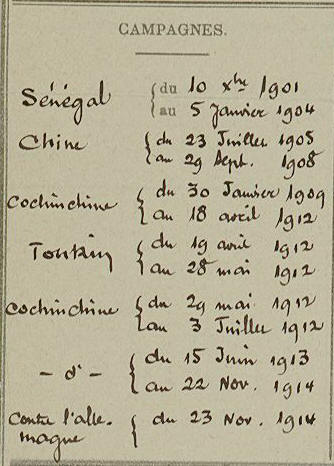 CAMPAGNES.
Sénégal { du 10 xbre 1901
au 5 Janvier 1904
Chine { du 23 Juillet 1905
au 29 Sept. 1908
Cochinchine { du 30 Janvier 1909
au 18 avril 1912
Tonkin { du 19 avril 1912
au 28 mai 1912
Cochinchine { du 29 mai 1912
au 3 Juillet 1912
- d° - { du 15 Juin 1913
au 22 Nov. 1914
Contre l'alle- { du 23 Nov. 1914
magne